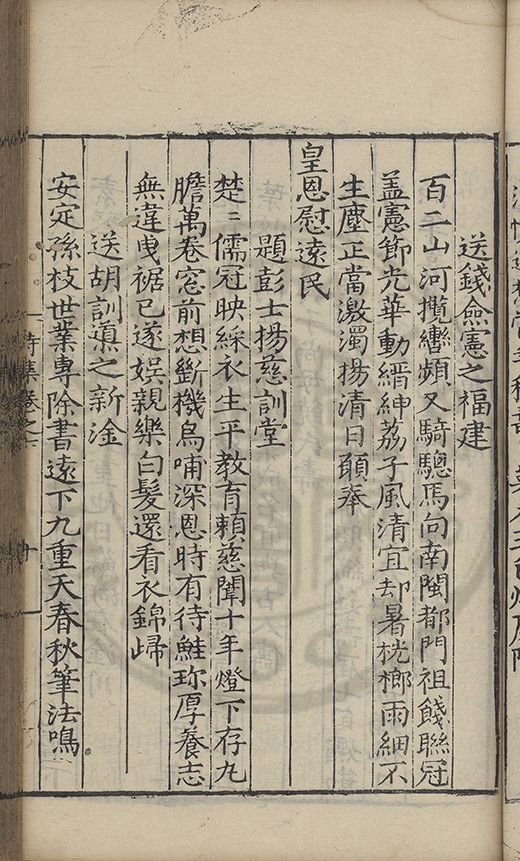 送錢僉憲之福建
百二山河攬轡頻又騎驄馬向南閩都門祖餞聯冠
盖憲節光華動縉紳荔子風清宜却暑桄榔雨細不
生塵正當激濁揚清日願奉
皇恩慰遠民
題彭士揚慈訓堂
楚〻儒冠映綵衣生平教育賴慈闈十年燈下存九
膽萬卷窓前想斷機烏哺深恩時有待鮭珎厚養志
無違曳裾已遂娱親樂白髮還看衣錦㱕
送胡訓導之新淦
安定孫枝世業專除書遠下九重天春秋筆法鳴
詩集卷之